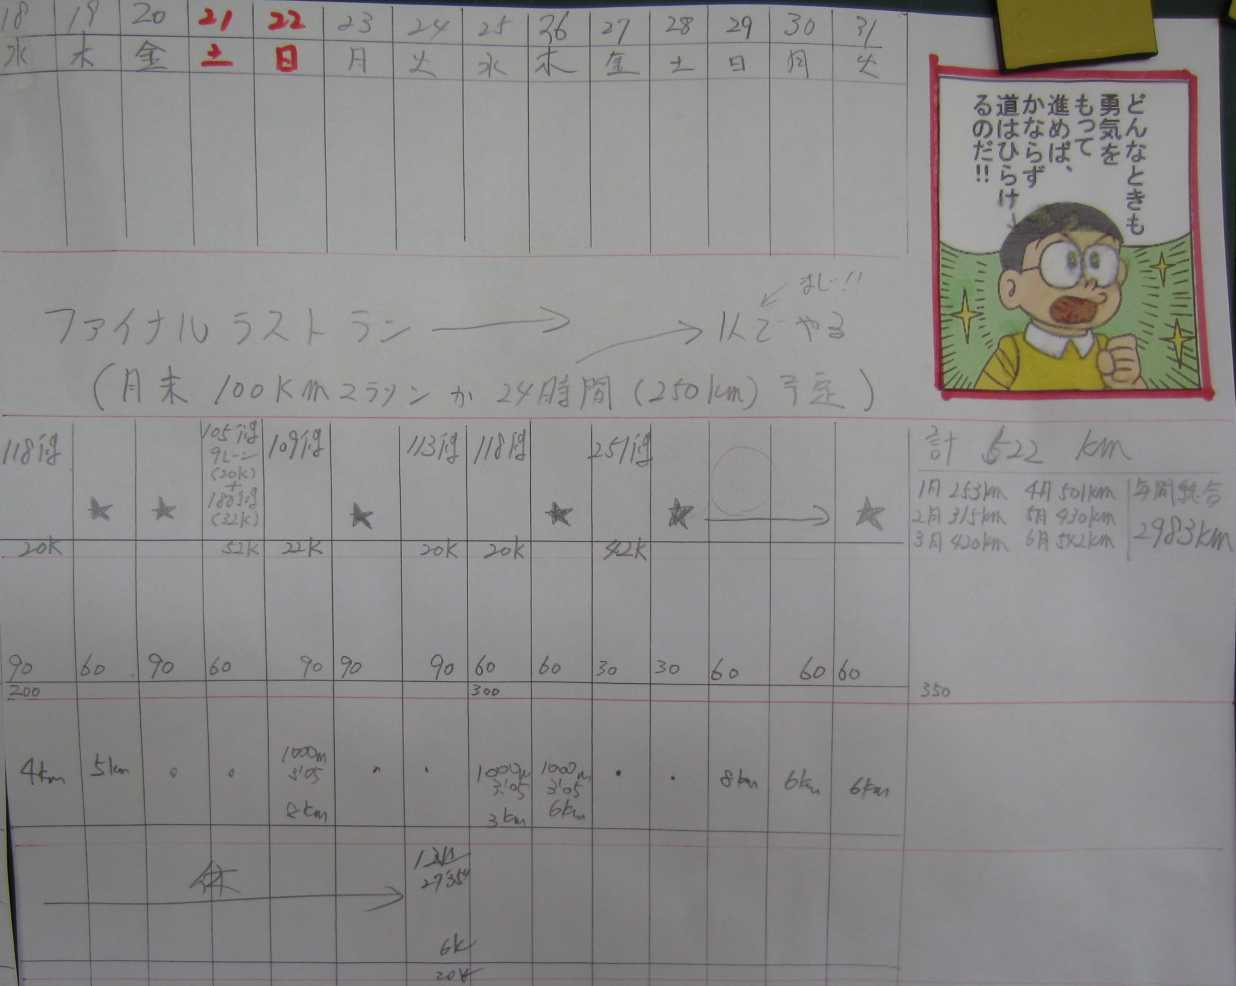 18 19 20 21 22 23 24 25 26 27 28 29 30 31
水 木 金 土 日 月 火 水 木 金 土 日 月 火
どんなときも
勇気を
もって
進めば、
かならず
道はひらけ
るのだ!!
まじ!!
ファイナルラストラン 1人でやる
(月末 100kmマラソンか 24時間 (250km) 予定)
118周 105周 109周 113周 118周 251周
9レーン
(20k)
+
180周
(32k)
20k 52k 22k 20k 20k 42k
計 522 km
1月 253km 4月 501km 年間総合
2月 315km 5月 430km 2983km
3月 420km 6月 542km
90 60 90 60 90 90 90 60 60 30 30 60 60 60
200 300 350
4km 5km 1000m 3'05 8km 1000m 3'05 3km 1000m 3'05 6km 8km 6km 6km
休
27'35"
6k
20k